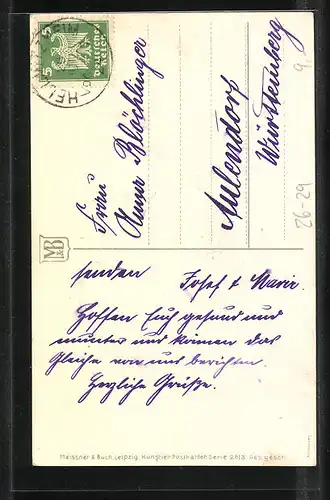 5 5
Deutsches
Reich
Frau
Anna Blöchlinger
Aulendorf
Württemberg
9.
26-29
M&B
senden Josef & Marie.
Hoffen Euch gesund und
munter und können das
Gleiche von uns berichten.
Herzliche Grüße.
Meissner & Buch, Leipzig. Künstler-Postkarten Serie 2613. Ges. gesch.